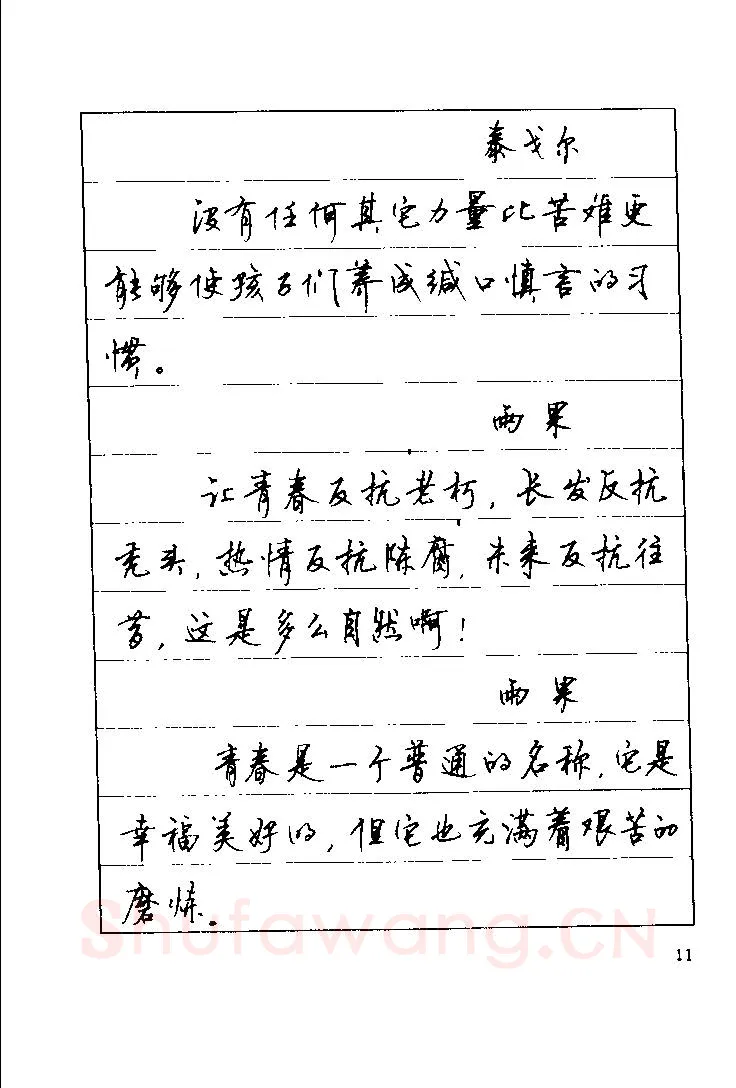 泰戈尔
没有任何其它力量比苦难更
能够使孩子们养成缄口慎言的习
惯。
雨果
让青春反抗老朽，长发反抗
秃头，热情反抗陈腐，未来反抗往
昔，这是多么自然啊！
雨果
青春是一个普通的名称，它是
幸福美好的，但它也充满着艰苦的
磨炼。
Shufawang.CN
11